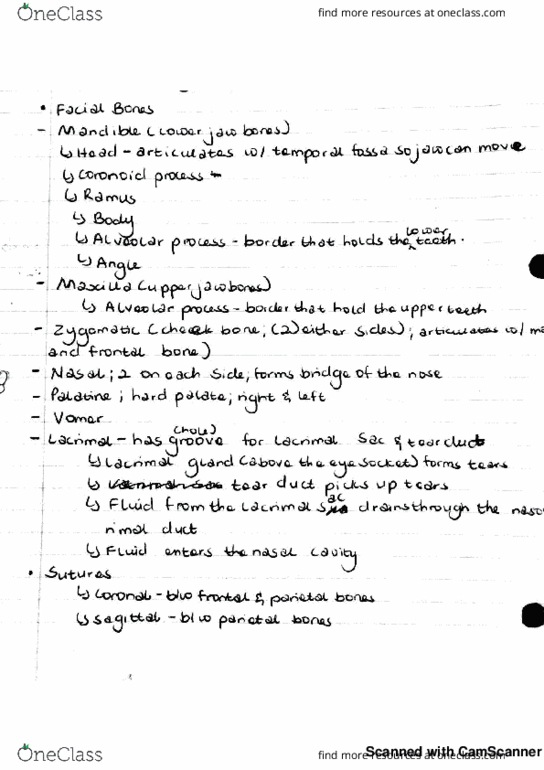 OneClass
find more resources at oneclass.com
• Facial Bones
- Mandible (lower jaw bones)
↳ Head - articulates w/ temporal fossa so jaw can move
↳ Coronoid process -
↳ Ramus
↳ Body
↳ Alveolar process - border that holds the lower teeth.
↳ Angle
- Maxilla (upper jaw bones)
↳ Alveolar process - border that hold the upper teeth
- Zygomatic (cheek bone; (2) either sides); articulates w/ ma
and frontal bone)
- Nasal; 2 on each side; forms bridge of the nose
- Palatine; hard palate; right & left
- Vomer
(hole)
- Lacrimal - has groove for lacrimal sac & tear duct
↳ lacrimal gland (above the eye socket) forms tears
↳ tear duct picks up tears
↳ Fluid from the lacrimal sac drains through the naso
rimal duct
↳ Fluid enters the nasal cavity
• Sutures
↳ Coronal - b/w frontal & parietal bones
↳ sagittal - b/w parietal bones
OneClass
find more resources at oneclass.com
Scanned with CamScanner